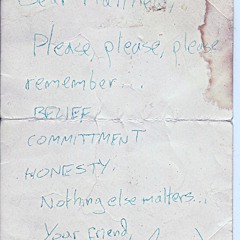 Dear
Please, please, please
remember...
BELIEF
COMMITTMENT
HONESTY.
Nothing else matters...
Your friend,